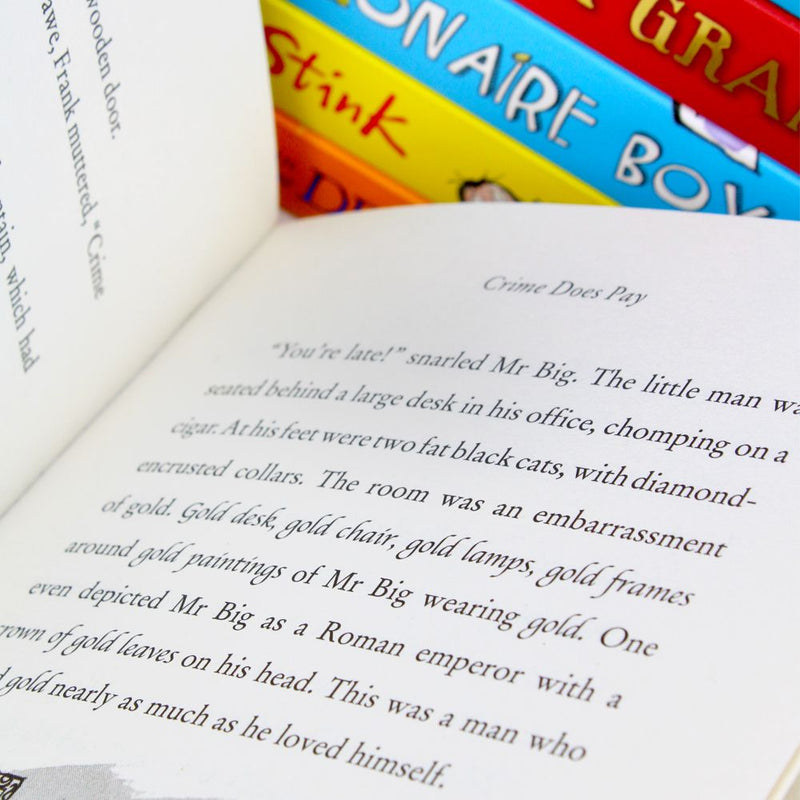 wooden door.
awe, Frank muttered, “Crime
which had
GRA
IONAIRE BOY
Stink
Crime Does Pay
“You’re late!” snarled Mr Big. The little man wa
seated behind a large desk in his office, chomping on a
cigar. At his feet were two fat black cats, with diamond-
encrusted collars. The room was an embarrassment
of gold. Gold desk, gold chair, gold lamps, gold frames
around gold paintings of Mr Big wearing gold. One
even depicted Mr Big as a Roman emperor with a
crown of gold leaves on his head. This was a man who
gold nearly as much as he loved himself.